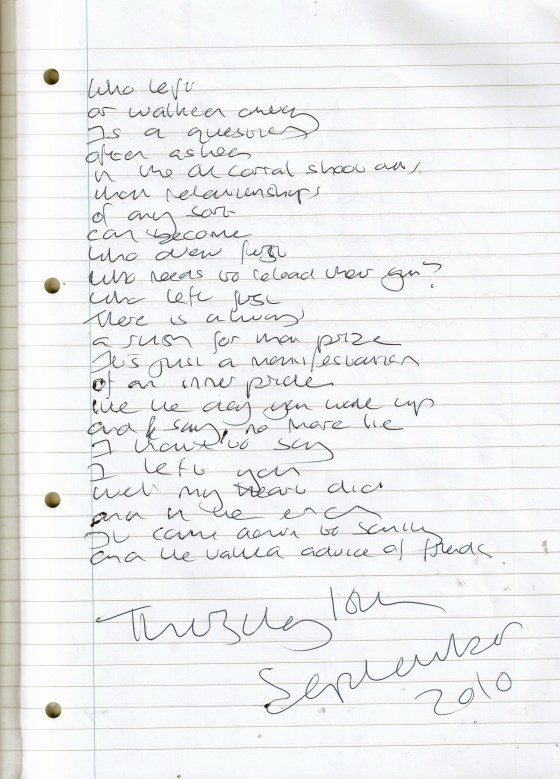 Who left
or walked away
Is a question
often asked
in the OK corral shoot outs,
that relationships
of any sort
can become
who drew first
who needs to reload their gun?
who left first
there is always
a rush for that prize
It's just a manifestation
of an inner pride
like the day you wake up
and say, no more lie
I have to say
I left you
well my heart did
and in the end
It came down to sanity
and the valued advice of friends.
Thursday 10th
September
2010